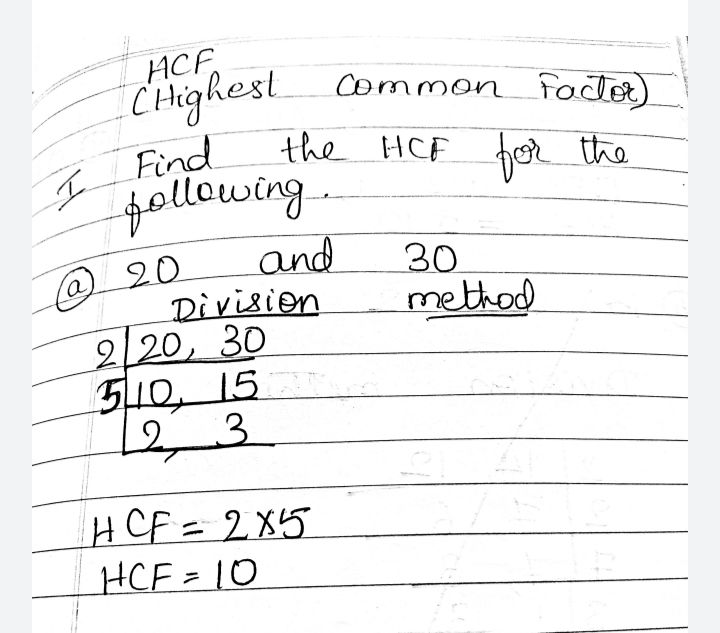 HCF
(Highest common Factor)
I Find the HCF for the
following.
(a) 20 and 30
Division method
2 20, 30
5 10, 15
2, 3
HCF = 2 x 5
HCF = 10